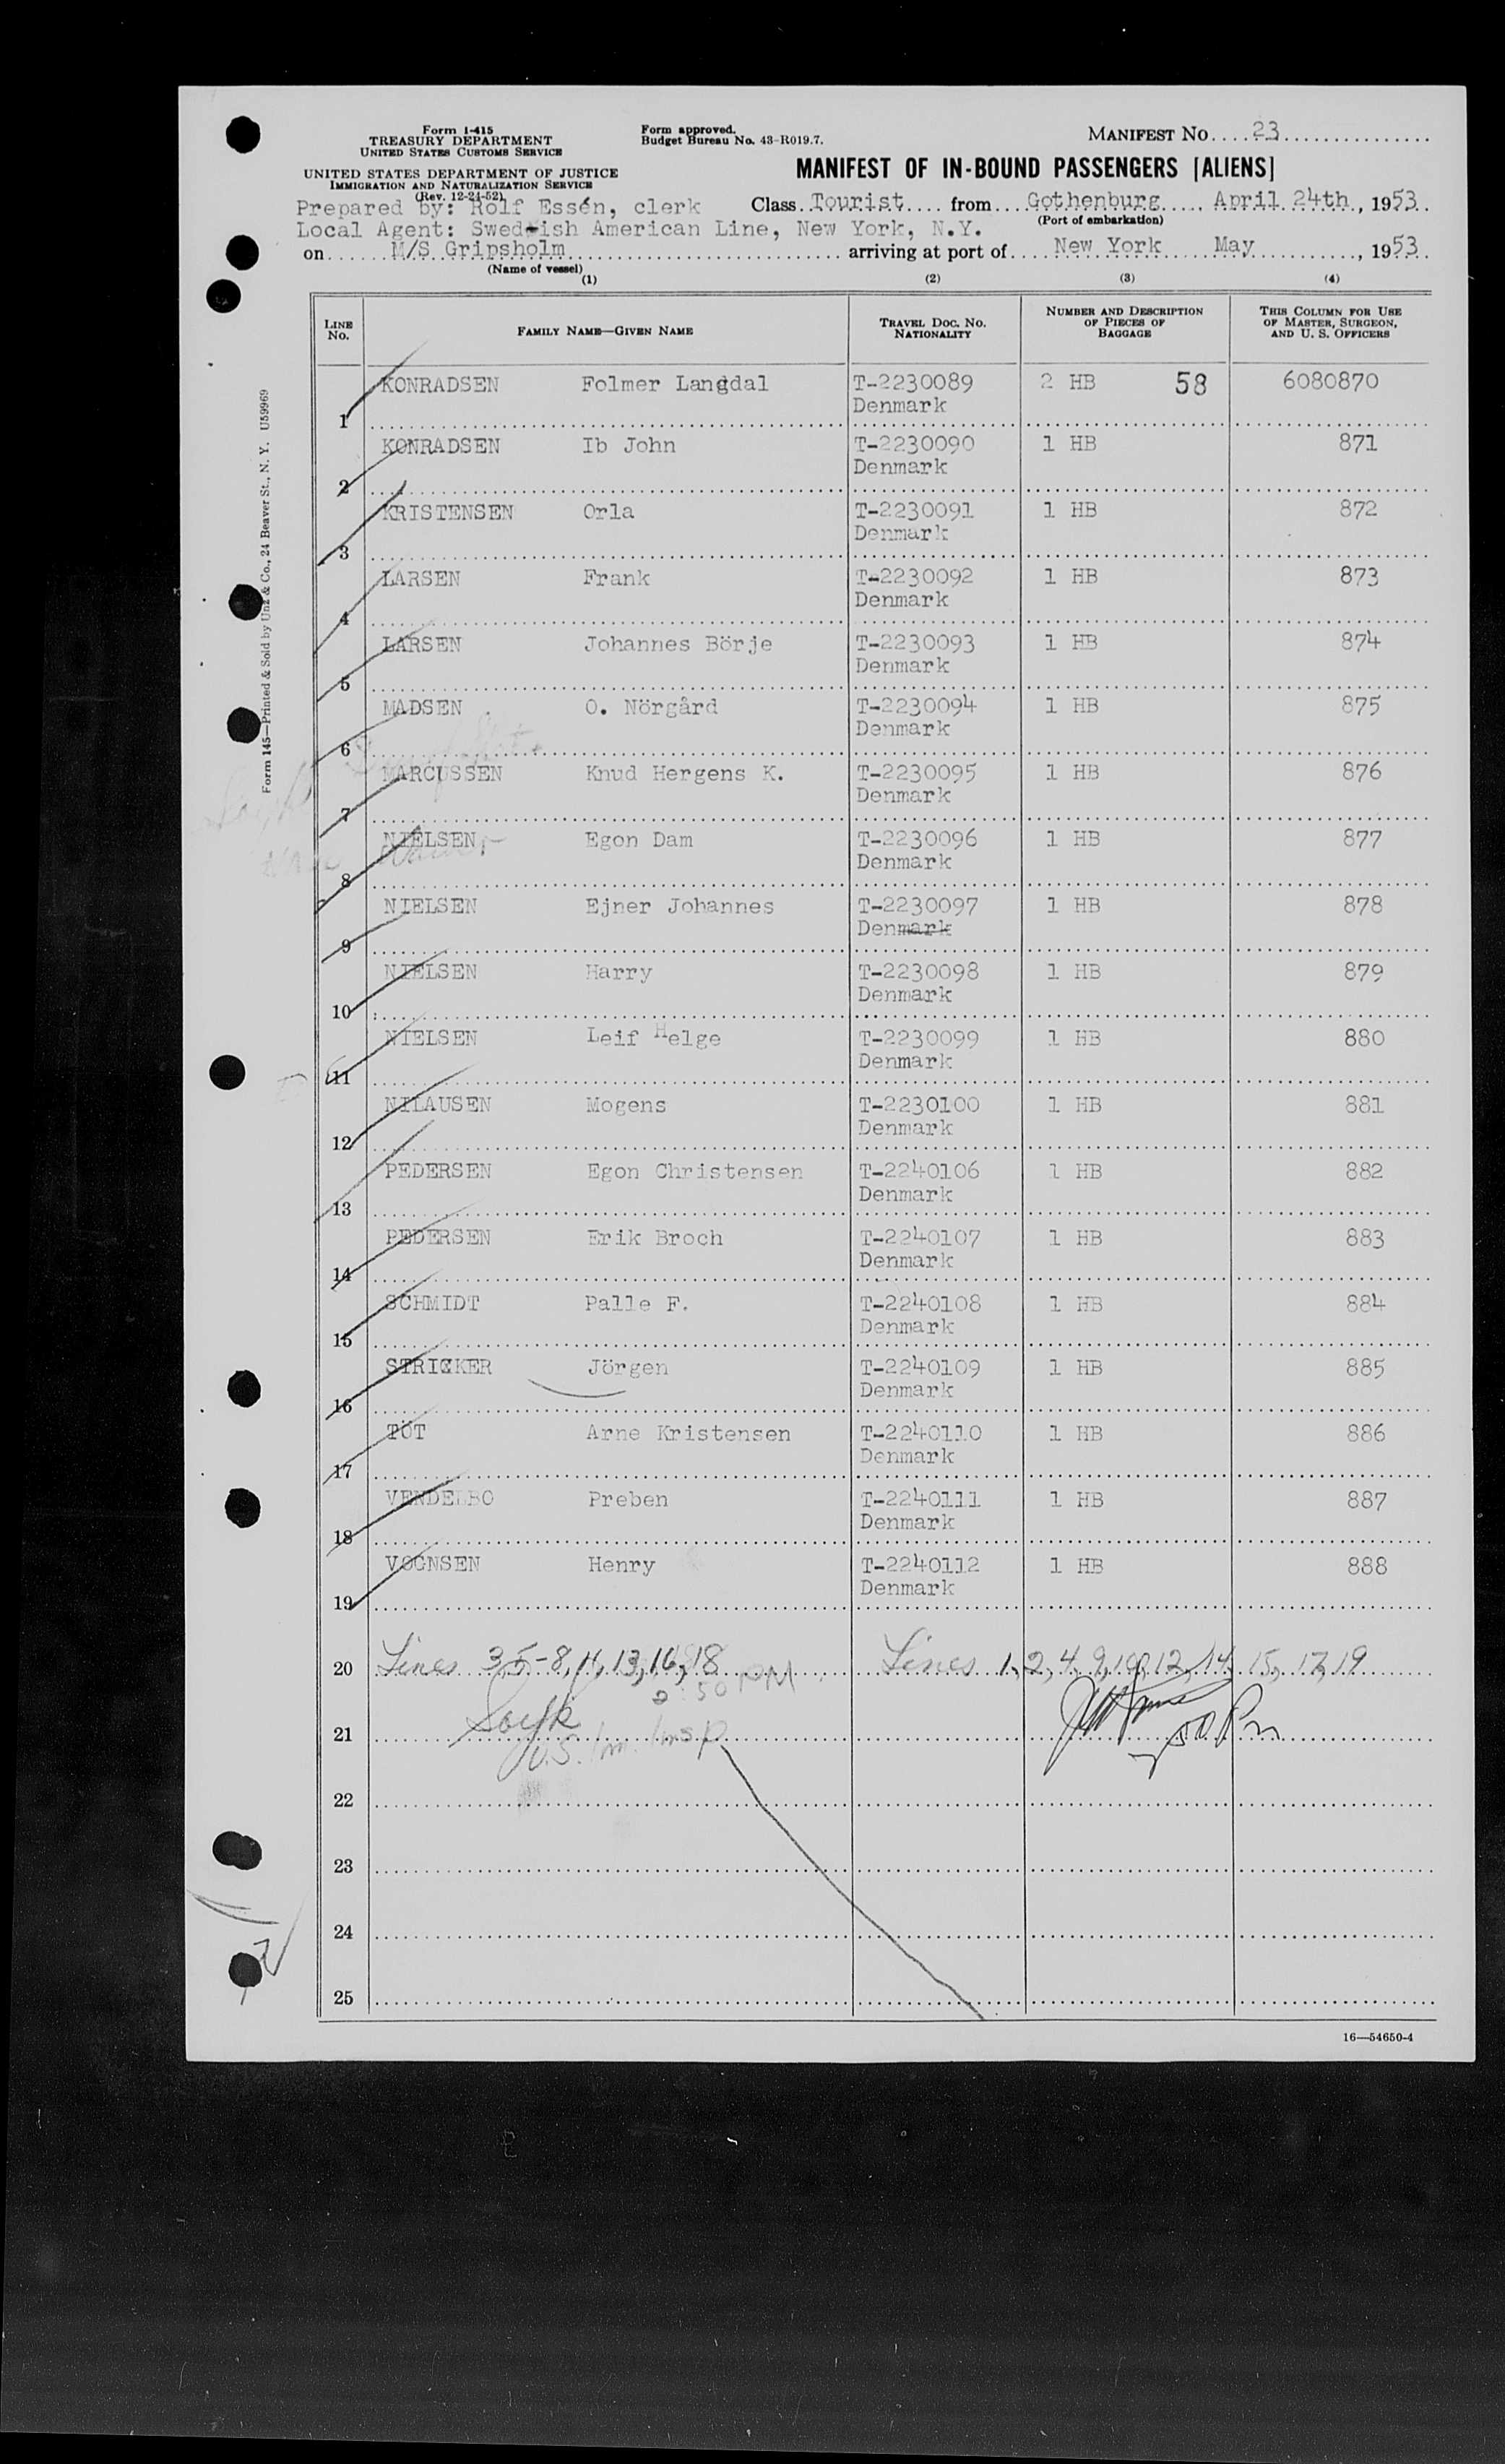 Form I-415
TREASURY DEPARTMENT
UNITED STATES CUSTOMS SERVICE
UNITED STATES DEPARTMENT OF JUSTICE
IMMIGRATION AND NATURALIZATION SERVICE
(Rev. 12-24-52)
Form approved.
Budget Bureau No. 43-R019.7.
MANIFEST No. 23
MANIFEST OF IN-BOUND PASSENGERS [ALIENS]
Prepared by: Rolf Essén, clerk
Class Tourist from Gothenburg, April 24th, 1953
(Port of embarkation)
Local Agent: Swedish American Line, New York, N.Y.
on M/S Gripsholm arriving at port of New York May, 1953
(Name of vessel)
(1) (2) (3) (4)
LINE No. FAMILY NAME—GIVEN NAME TRAVEL DOC. No. NATIONALITY NUMBER AND DESCRIPTION OF PIECES OF BAGGAGE THIS COLUMN FOR USE OF MASTER, SURGEON, AND U. S. OFFICERS
1 KONRADSEN Folmer Langdal T-2230089 2 HB 58 6080870
Denmark
2 KONRADSEN Ib John T-2230090 1 HB 871
Denmark
3 KRISTENSEN Orla T-2230091 1 HB 872
Denmark
4 LARSEN Frank T-2230092 1 HB 873
Denmark
5 LARSEN Johannes Börje T-2230093 1 HB 874
Denmark
6 MADSEN O. Nörgård T-2230094 1 HB 875
Denmark
7 MARCUSSEN Knud Hergens K. T-2230095 1 HB 876
Denmark
8 NIELSEN Egon Dam T-2230096 1 HB 877
Denmark
9 NIELSEN Ejner Johannes T-2230097 1 HB 878
Denmark
10 NIELSEN Harry T-2230098 1 HB 879
Denmark
11 NIELSEN Leif Helge T-2230099 1 HB 880
Denmark
12 NILAUSEN Mogens T-2230100 1 HB 881
Denmark
13 PEDERSEN Egon Christensen T-2240106 1 HB 882
Denmark
14 PEDERSEN Erik Broch T-2240107 1 HB 883
Denmark
15 SCHMIDT Palle F. T-2240108 1 HB 884
Denmark
16 STRICKER Jörgen T-2240109 1 HB 885
Denmark
17 TÖT Arne Kristensen T-2240110 1 HB 886
Denmark
18 VENDELBO Preben T-2240111 1 HB 887
Denmark
19 VOGNSEN Henry T-2240112 1 HB 888
Denmark
20 Lines 3,5-8, 11, 13, 16, 18 Lines 1, 2, 4, 9, 10, 12, 14, 15, 17, 19
2:50 PM
21 U.S. Im. Insp. 50 Pm
22
23
24
25
16—54650-4
Form 145—Printed & Sold by Unz & Co., 24 Beaver St., N. Y. U59969